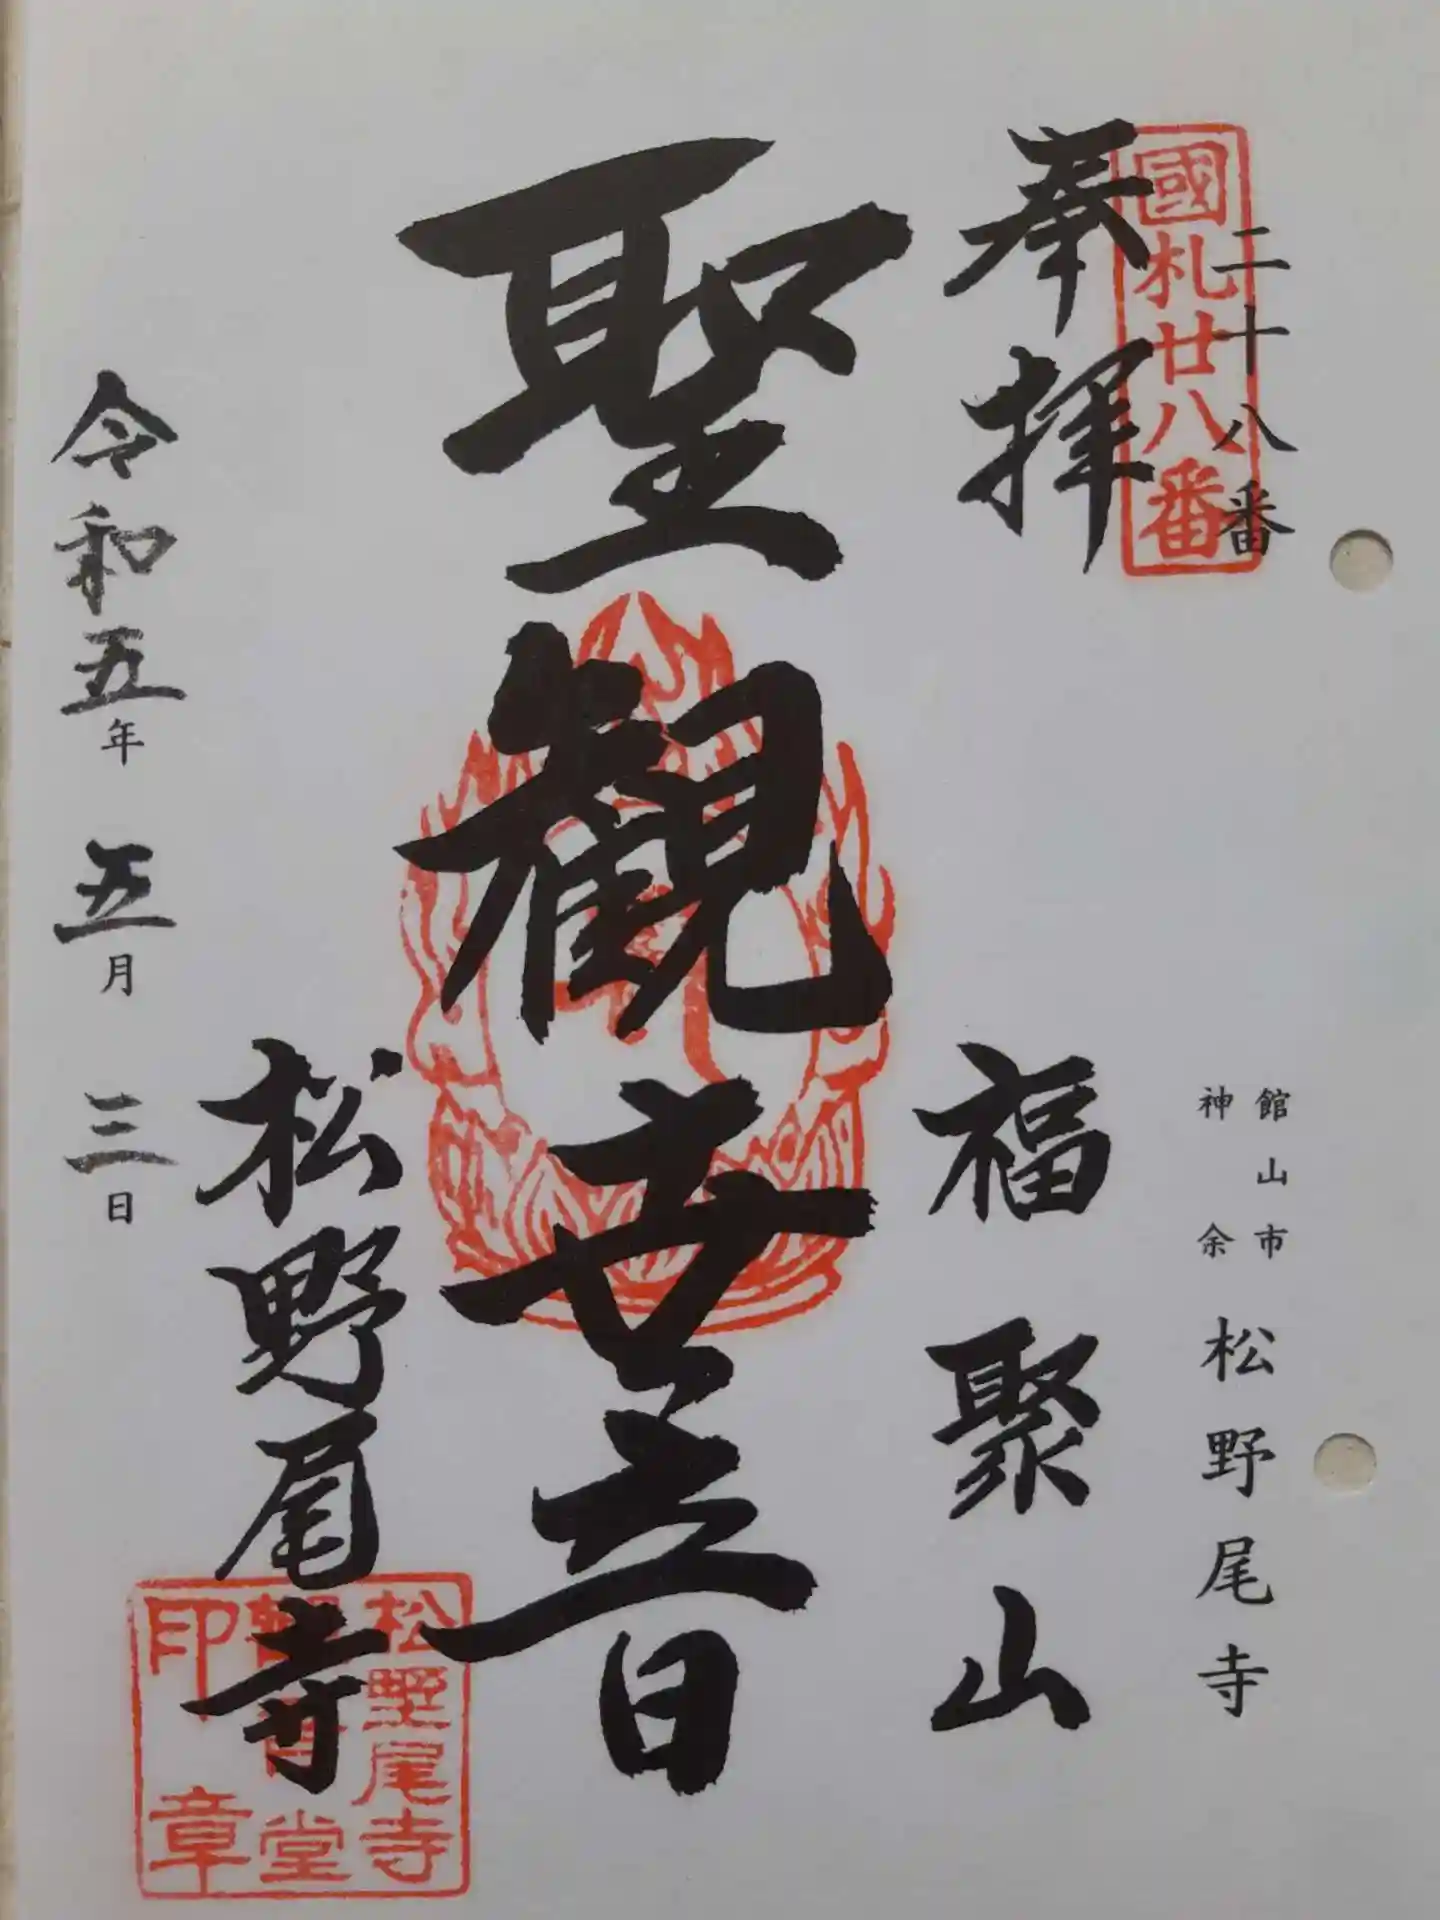 二十八番
國札廿八番
奉拝
館山市
神余
松野尾寺
福聚山
聖観世音
松野尾寺
令和五年五月三日
松野尾寺
堂
印章